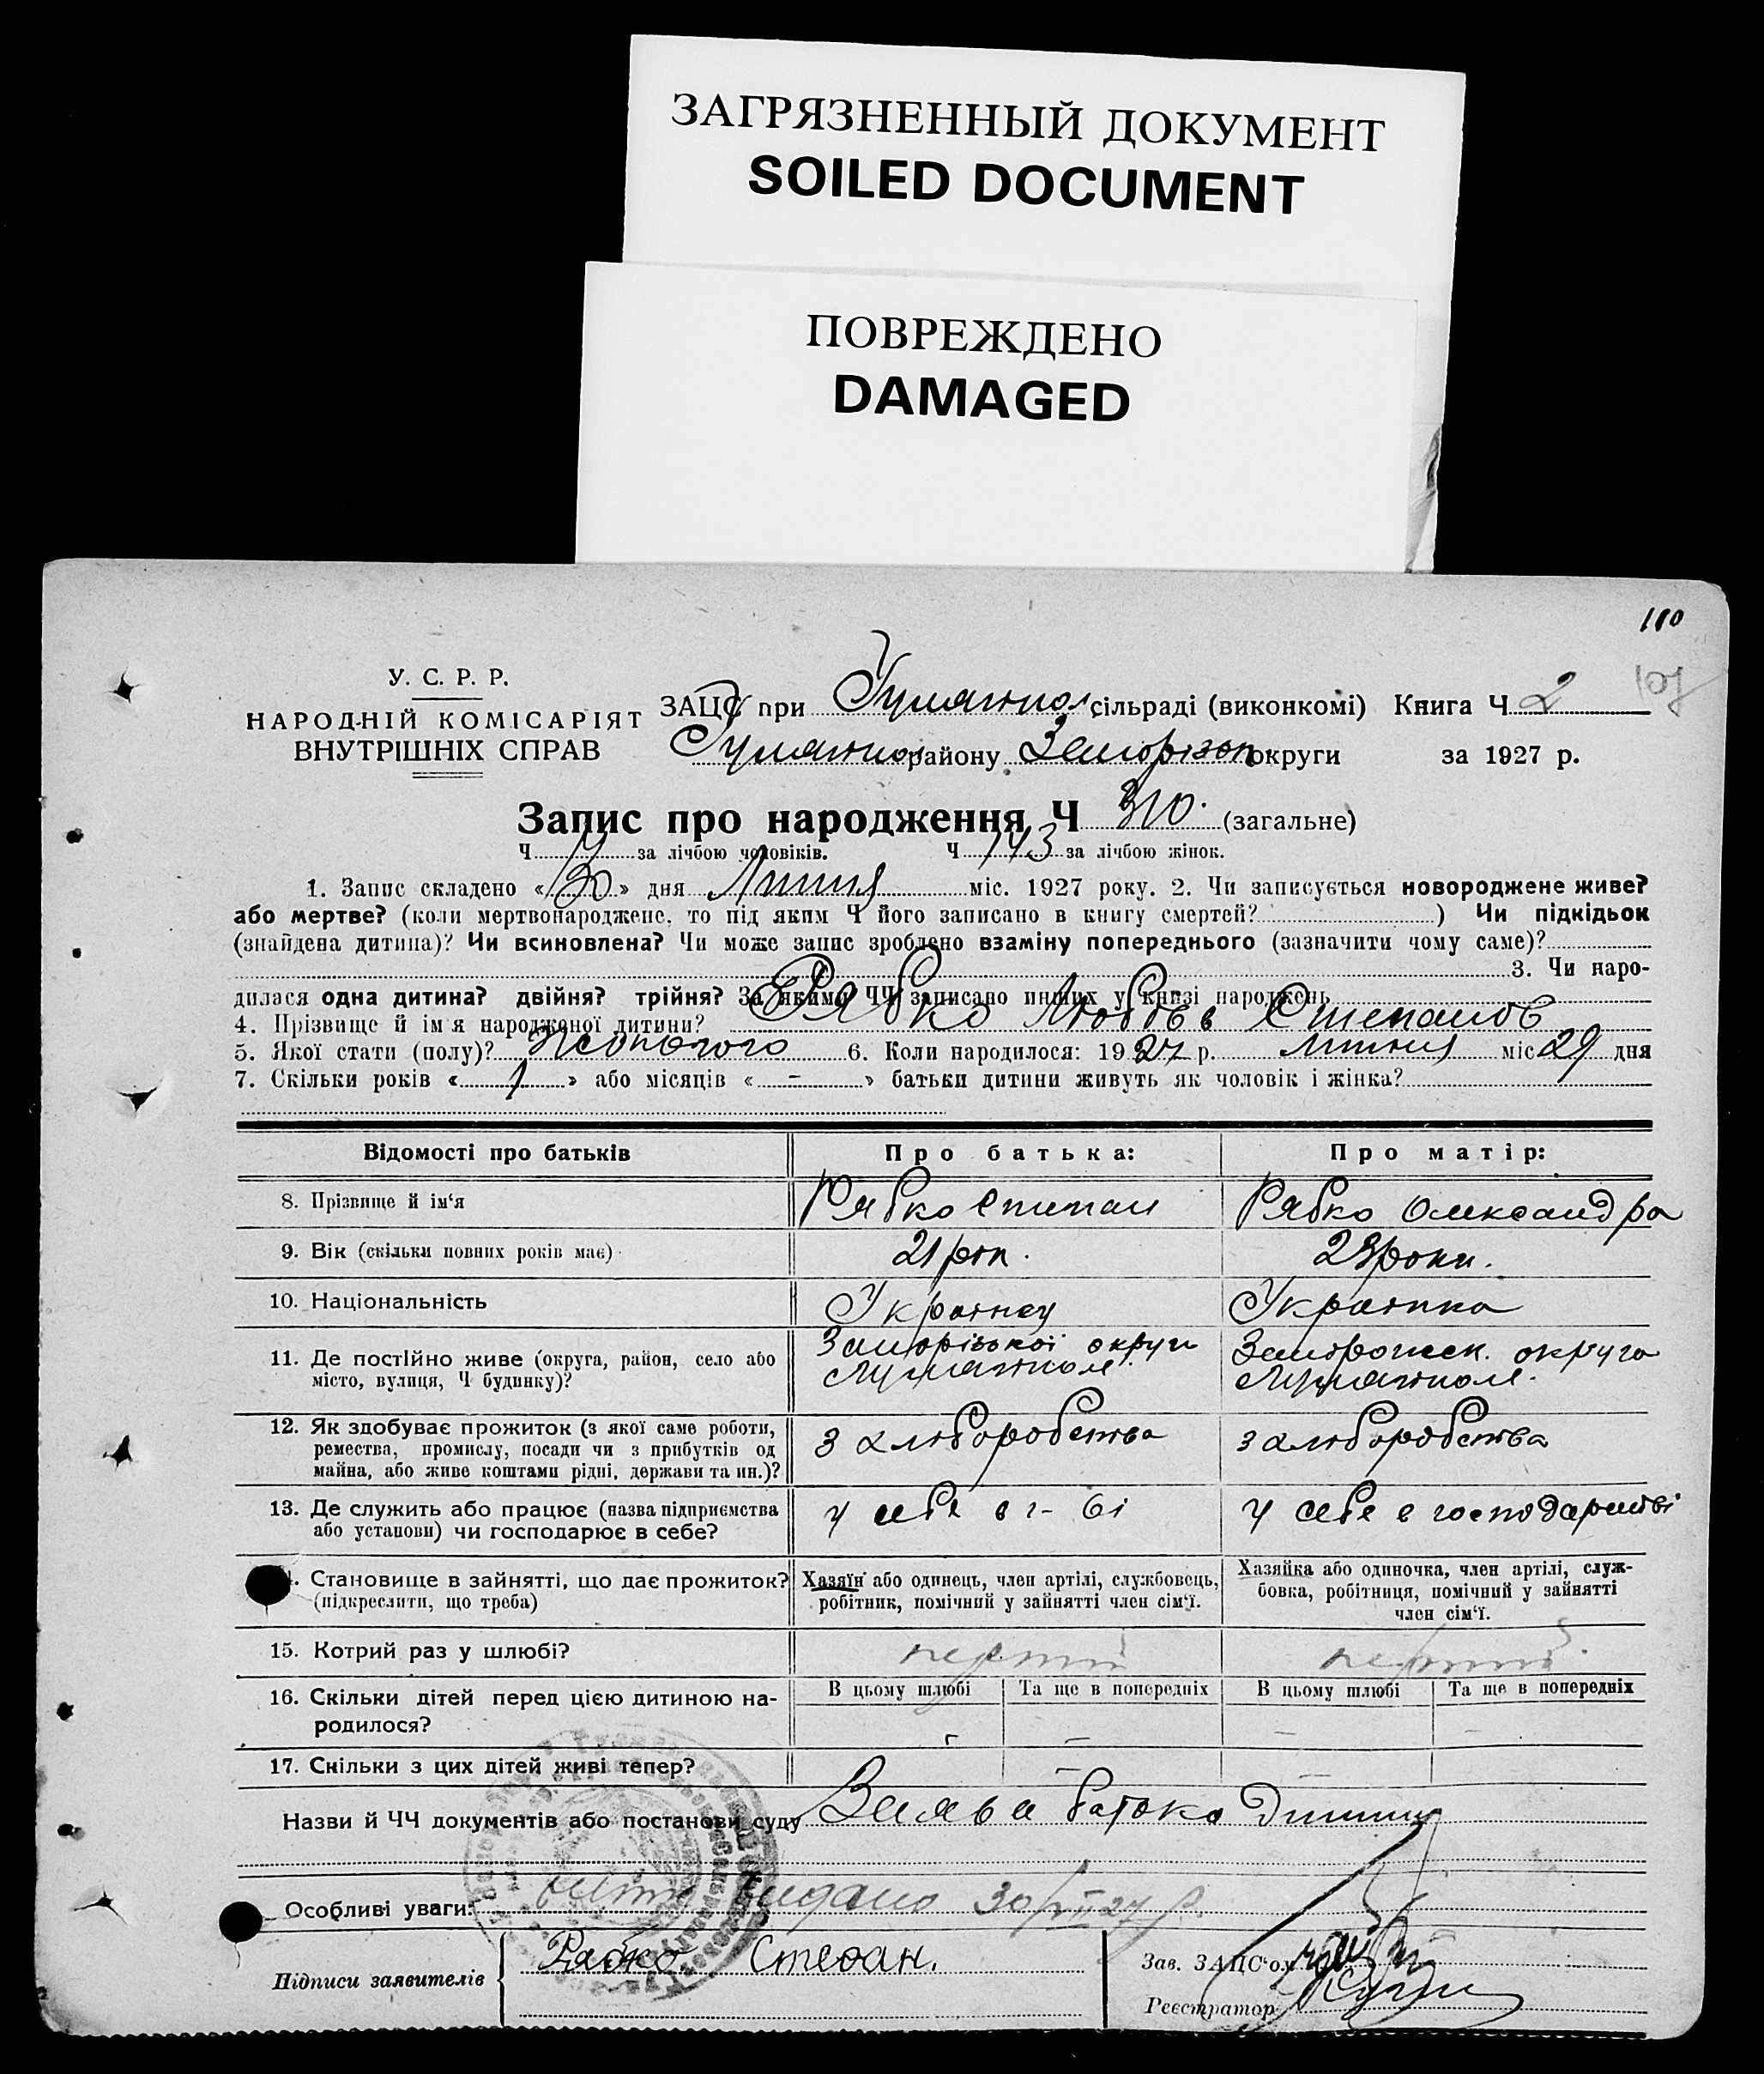 ЗАГРЯЗНЕННЫЙ ДОКУМЕНТ
SOILED DOCUMENT
ПОВРЕЖДЕНО
DAMAGED
110
У. С. Р. Р.
НАРОДНІЙ КОМІСАРІЯТ
ВНУТРІШНІХ СПРАВ
ЗАЦС при Гуляйпол. сільраді (виконкомі) Книга Ч 2
Гуляйпол району Запорізьк округи за 1927 р.
Запис про народження Ч 310. (загальне)
Ч за лічбою чоловіків. Ч 143 за лічбою жінок.
1. Запис складено «30» дня Липня міс. 1927 року. 2. Чи записується новороджене живе?
або мертве? (коли мертвонароджене, то під яким Ч його записано в книгу смертей? ) Чи підкідьок
(знайдена дитина)? Чи всиновлена? Чи може запис зроблено взаміну попереднього (зазначити чому саме)?
3. Чи наро-
дилася одна дитина? двійня? трійня? За якими ЧЧ записано инших у книзі народжень
4. Прізвище й ім'я народженої дитини? Рябко Любовь Степанов
5. Якої стати (полу)? Жіночого 6. Коли народилося: 1927 р. Липня міс 29 дня
7. Скільки років « 1 » або місяців « - » батьки дитини живуть як чоловік і жінка?
Відомості про батьків Про батька: Про матір:
8. Прізвище й ім'я Рябко Степан Рябко Олександра
9. Вік (скільки повних років має) 21 рік. 23 роки.
10. Національність Українец Українка
11. Де постійно живе (округа, район, село або Запорізької округи Запорожск. округа
місто, вулиця, Ч будинку)? м. Гуляйполе. м. Гуляйполе.
12. Як здобуває прожиток (з якої саме роботи,
ремества, промислу, посади чи з прибутків од з хліборобства з хліборобства
майна, або живе коштами рідні, держави та ин.)?
13. Де служить або працює (назва підприємства у себе в г-ві у себе в господарстві
або установи) чи господарює в себе?
14. Становище в зайнятті, що дає прожиток? Хазяїн або одинець, член артілі, службовець, Хазяйка або одиночка, член артілі, служ-
(підкреслити, що треба) робітник, помічний у зайнятті член сім'ї. бовка, робітниця, помічний у зайнятті
член сім'ї.
15. Котрий раз у шлюбі? перший перший
16. Скільки дітей перед цією дитиною на- В цьому шлюбі Та ще в попередніх В цьому шлюбі Та ще в попередніх
родилося? - - - -
17. Скільки з цих дітей живі тепер? - -
Назви й ЧЧ документів або постанови суду Заява батька дитини
Особливі уваги: видано 30/VII 27 р.
Підписи заявителів Рябко. Степан.
Зав. ЗАЦС'ом
Реєстратор